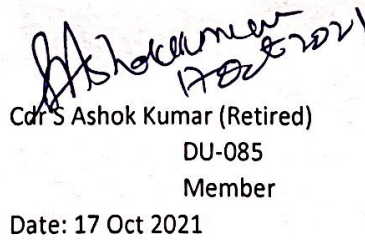 SAshokkumar
17 Oct 2021
Cdr S Ashok Kumar (Retired)
DU-085
Member
Date: 17 Oct 2021